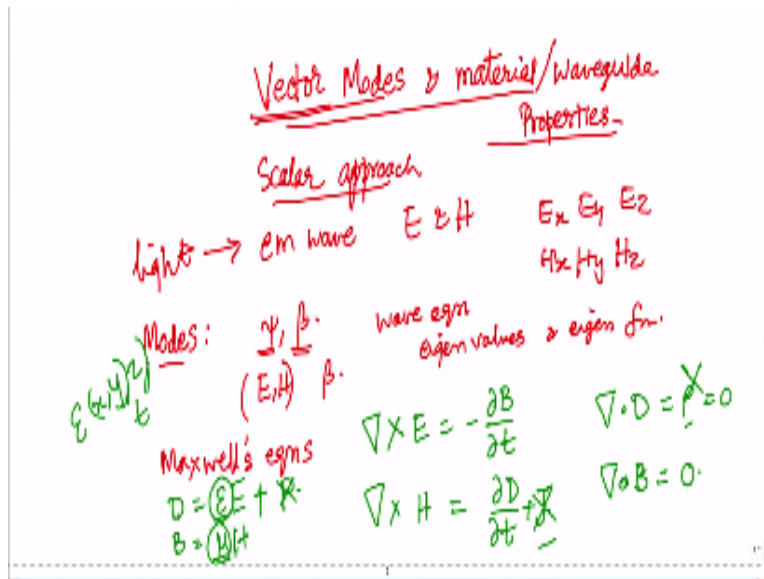 Vector Modes & material/waveguide
Properties-
Scalar approach
light → em wave E & H Ex Ey Ez
Hx Hy Hz
Modes: Ψ, β. wave eqn
eigen values & eigen fn.
(E,H) β.
ε(x,y,z)
t
Maxwell's eqns
∇×E = -∂B/∂t ∇·D = ρ = 0
D = εE +
B = μH
∇×H = ∂D/∂t + J ∇·B = 0.